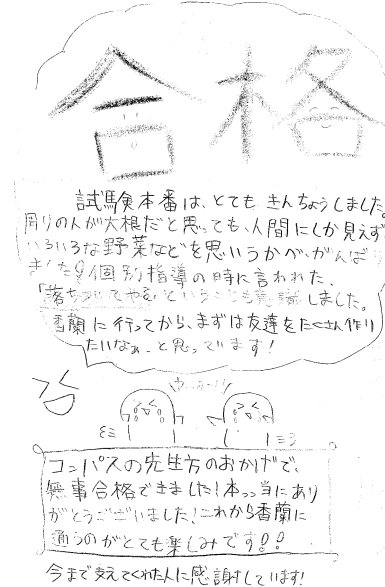 合格
試験本番は、とてもきんちょうしました。
周りの人が大根だと思っても、人間にしか見えず
いろいろな野菜などを思いうかべ、がんばり
ました!個別指導の時に言われた、
「落ちついてやる」ということも意識しました。
香蘭に行ってから、まずは友達をたくさん作り
たいなぁ~と思っています!
コンパスの先生方のおかげで、
無事合格できました!本っ当にあり
がとうございました!これから香蘭に
通うのがとても楽しみです!!
今まで支えてくれた人に感謝しています!